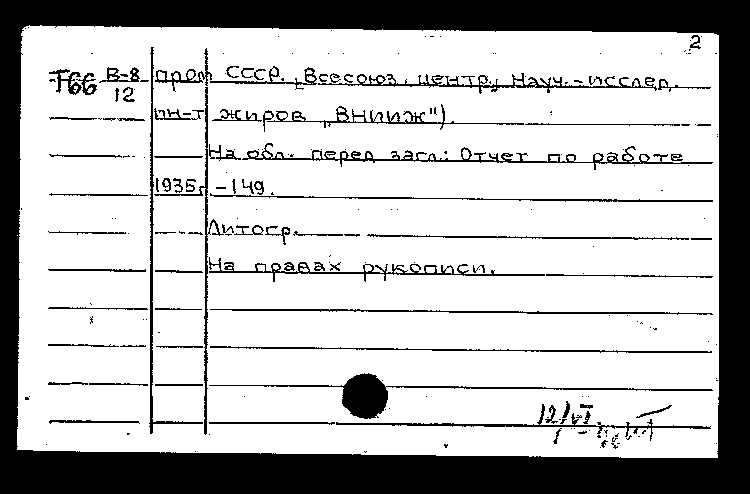 2
Т66 В-8 пром СССР. Всесоюз. центр. Науч.-исслед.
12
ин-т жиров „ВНИИЖ").
На обл. перед загл.: Отчет по работе
1935г. -149.
Литогр.
На правах рукописи.
12/VI